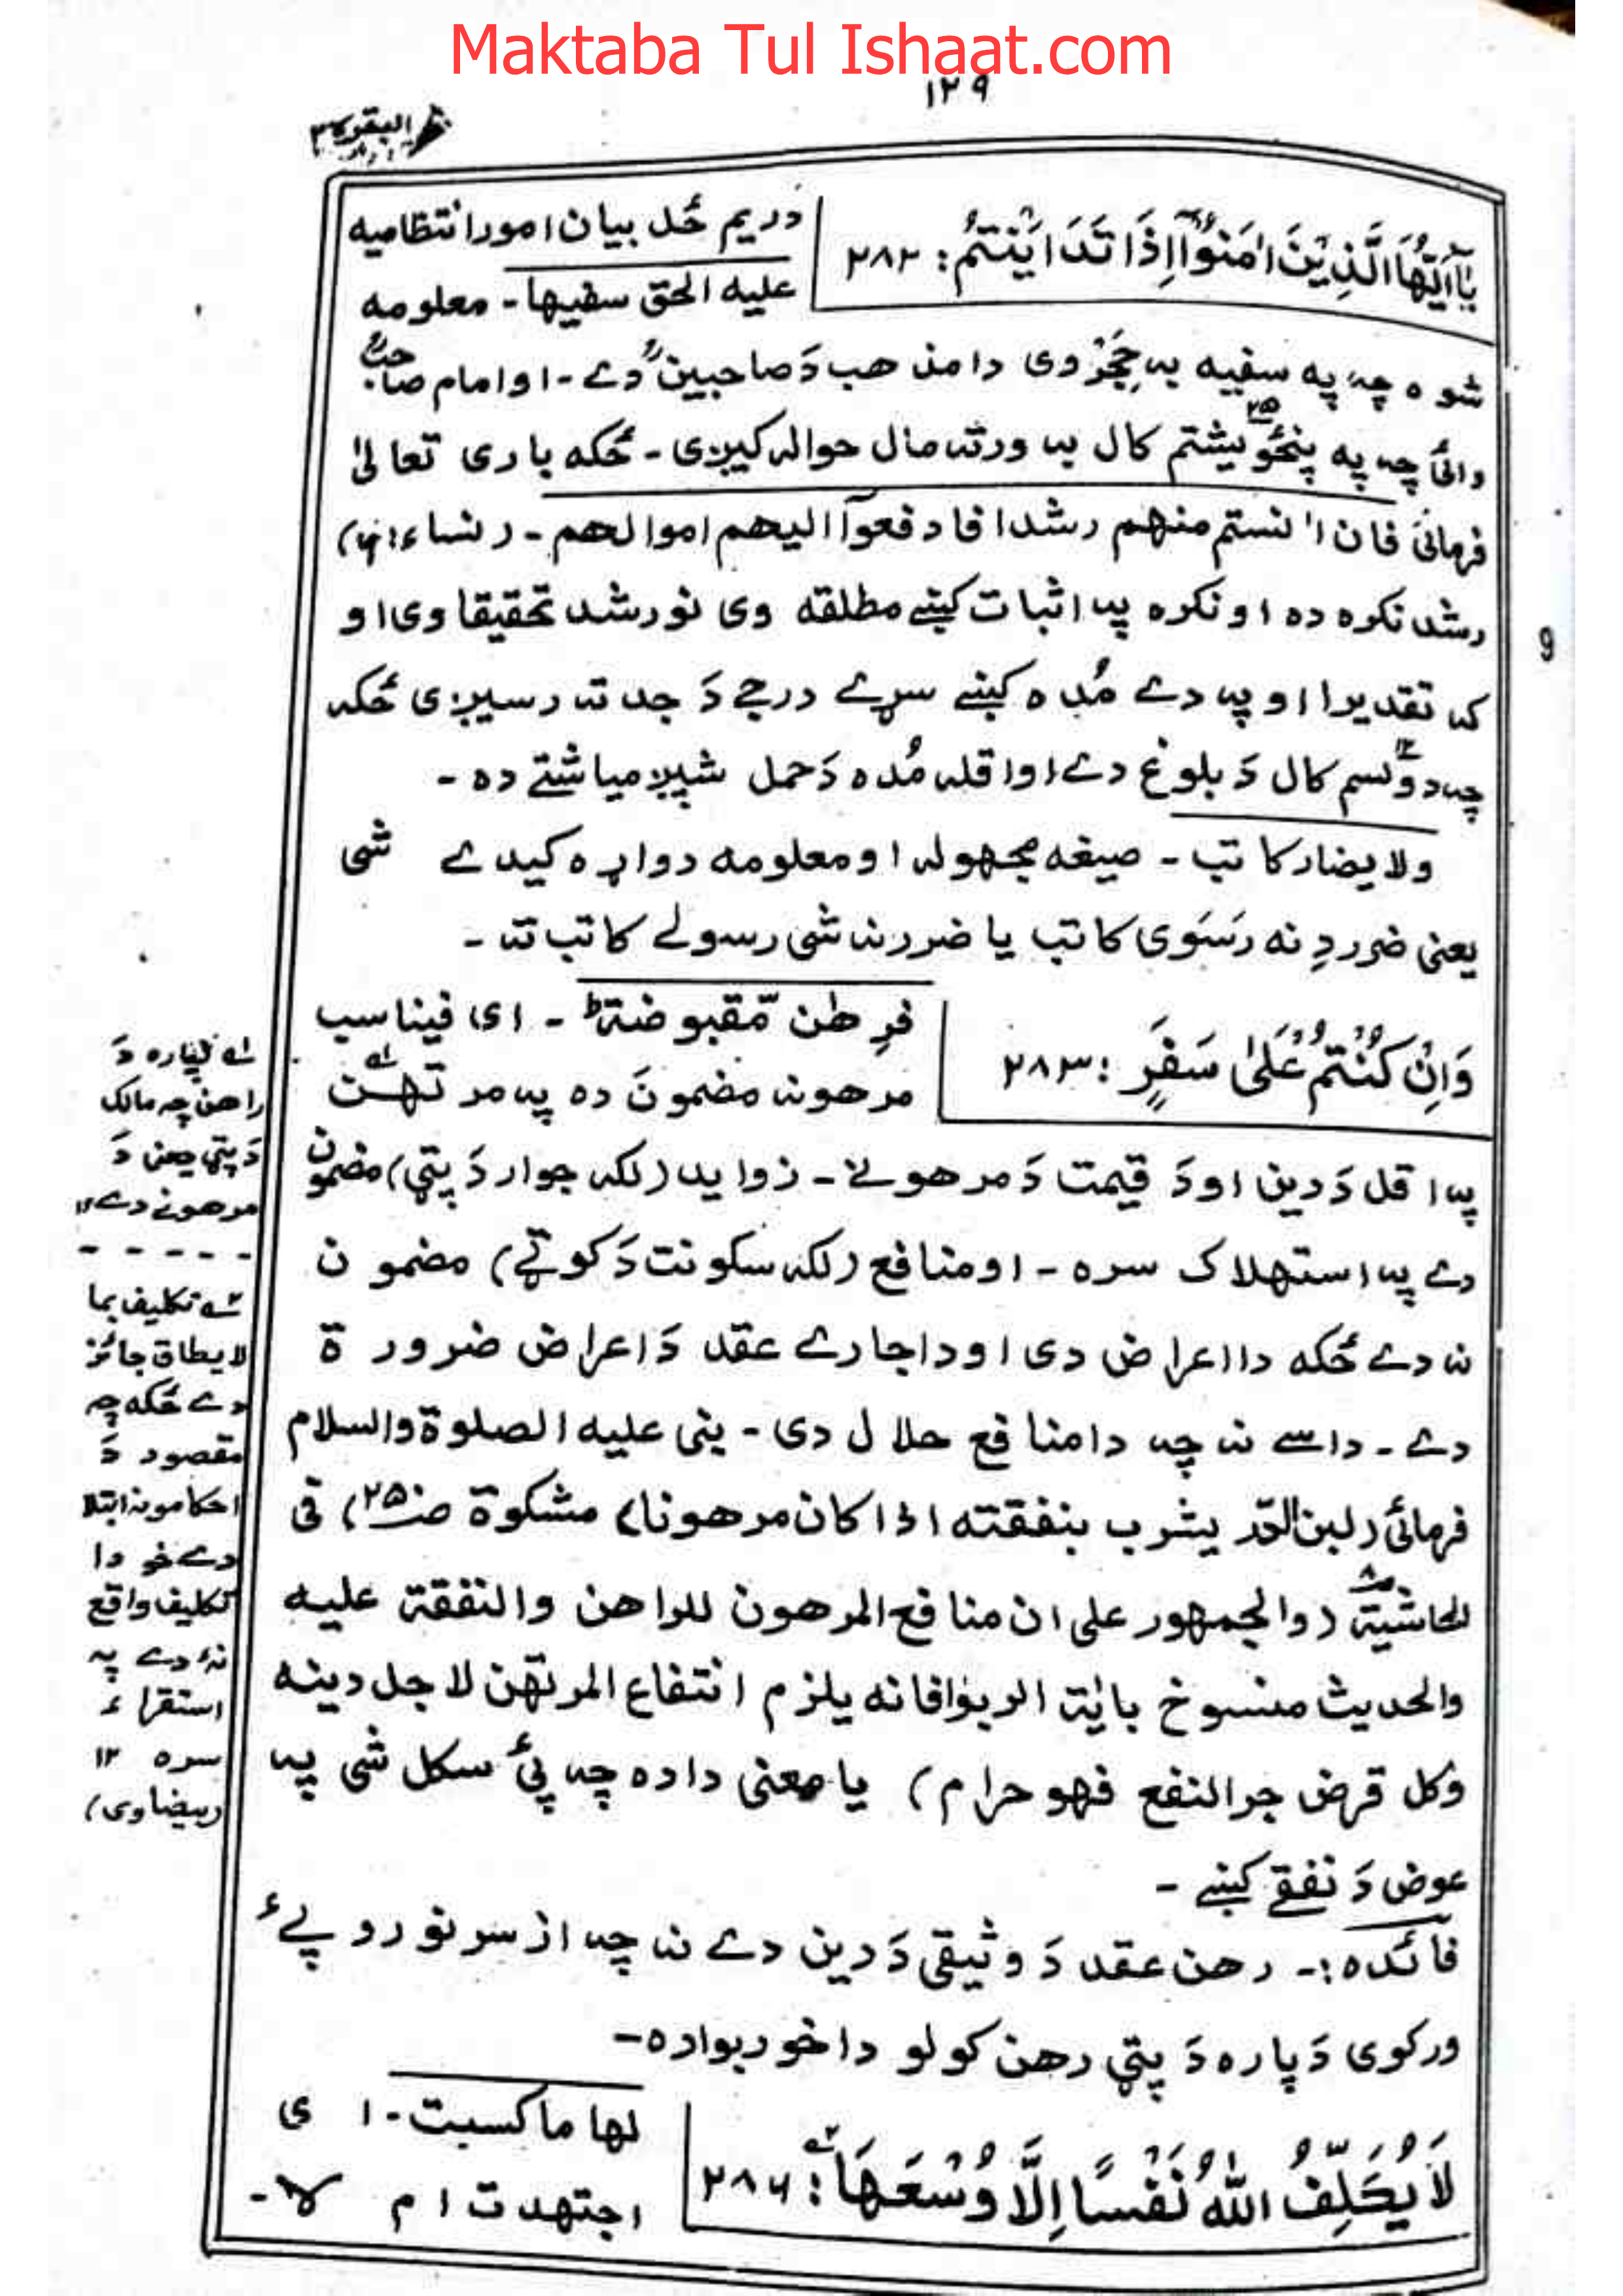 Maktaba Tul Ishaat.com
۱۲۹
البقرة
يٰٓاَيُّهَا الَّذِيْنَ اٰمَنُوْٓا اِذَا تَدَايَنْتُمْ: ۲۸۲
دریم ځل بیان امور انتظامیه
علیه الحق سفیها۔ معلومه
شوه چہ په سفیه بہ حِجَر وی دا مذهب دَ صاحبینؒ دے۔ او امام صاحبؒ
وائی چہ په پنځو یشتم ۲۵ کال بہ ورتہ مال حوالہ کیږی۔ ځکه باری تعالیٰ
فرمائی فان اٰنستم منهم رشدا فادفعوآ الیهم اموالهم۔ (نساء: ۶)
رشد نکره ده او نکره پہ اثبات کښے مطلقه وی نو رشد تحقیقا وی او
کہ تقدیرا او پہ دے مُده کښے سړے درجے دَ جد تہ رسیږی ځکہ
چہ دوَلسم ۱۲ کال دَ بلوغ دے او اقلہ مُده دَ حمل شپږ میاشتے ده۔
ولا یضار کاتب۔ صیغه مجهولہ او معلومه دواړه کیدے شی
یعنی ضرر دِ نه رَسَوی کاتب یا ضرر نہ شی رسولے کاتب تہ۔
وَاِنْ كُنْتُمْ عَلٰى سَفَرٍ: ۲۸۳
فرِهٰن مّقبوضة ط۔ ای فیناسب
مرهونہ مضمونَ ده پہ مرتهن ۱ے
پہ اقل دَ دین او دَ قیمت دَ مرهونے۔ زواید (لکہ جوار دَ پټی) مضمون
دے پہ استهلاک سره۔ او منافع (لکہ سکونت دَ کوټے) مضمون
نہ دے ځکه دا اعراض دی او د اجارے عقد دَ اعراض ضرورة
دے۔ داسے نہ چہ دا منافع حلال دی۔ بنی علیه الصلوة والسلام
فرمائی (لبن الدّر یشرب بنفقته اذا کان مرهونا) مشکوة صـ۲۵) فی
الحاشیة (والجمهور علی ان منافع المرهون للراهن والنفقة علیه
والحدیث منسوخ باٰیة الربوٰا فانه یلزم انتفاع المرتهن لاجل دینه
وکل قرض جر النفع فهو حرام) یا معنی داده چہ پئ سکل شی پہ
عوض دَ نفقے کښے۔
فائده:۔ رهن عقد دَ وثیقی دَ دین دے نہ چہ از سر نو روپےء
ورکوی دَ پاره دَ پټی رهن کولو دا خو ربوا ده۔
لَا يُكَلِّفُ اللّٰهُ نَفْسًا اِلَّا وُسْعَهَا ۲ے: ۲۸۶
لها ما کسبت۔ ای
اجتهدت ام لا۔
راهن چہ مالک
دَ پټی یعنی دَ
مرهونے دے ۱۲
- - - - -
۲ے تکلیف بما
لا یطاق جائز
دے ځکه چہ
مقصود دَ
احکامونہ ابتلا
دے خو دا
تکلیف واقع
نۂ دے پہ
استقراء
سره ۱۲
(بیضاوی)